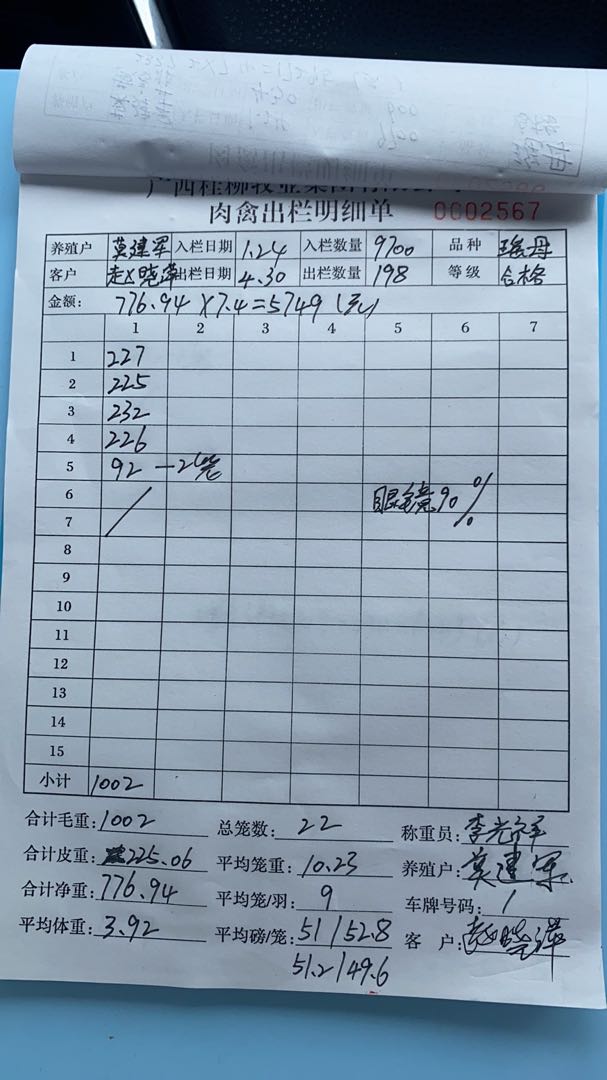 肉禽出栏明细单 0602567
养殖户 莫建军 入栏日期 1.24 入栏数量 9700 品种 瑶丹
客户 赵晓萍 出栏日期 4.30 出栏数量 198 等级 合格
金额: 776.94×7.4=5749(元)
1 2 3 4 5 6 7
1 227
2 225
3 232
4 226
5 92 —2笼
6 眼镜90%
7
8
9
10
11
12
13
14
15
小计 1002
合计毛重:1002 总笼数:22 称重员:李光
合计皮重:225.06 平均笼重:10.23 养殖户:莫建军
合计净重:776.94 平均笼/羽:9 车牌号码:/
平均体重:3.92 平均磅/笼:51/52.8 客户:赵晓萍
51.2/49.6